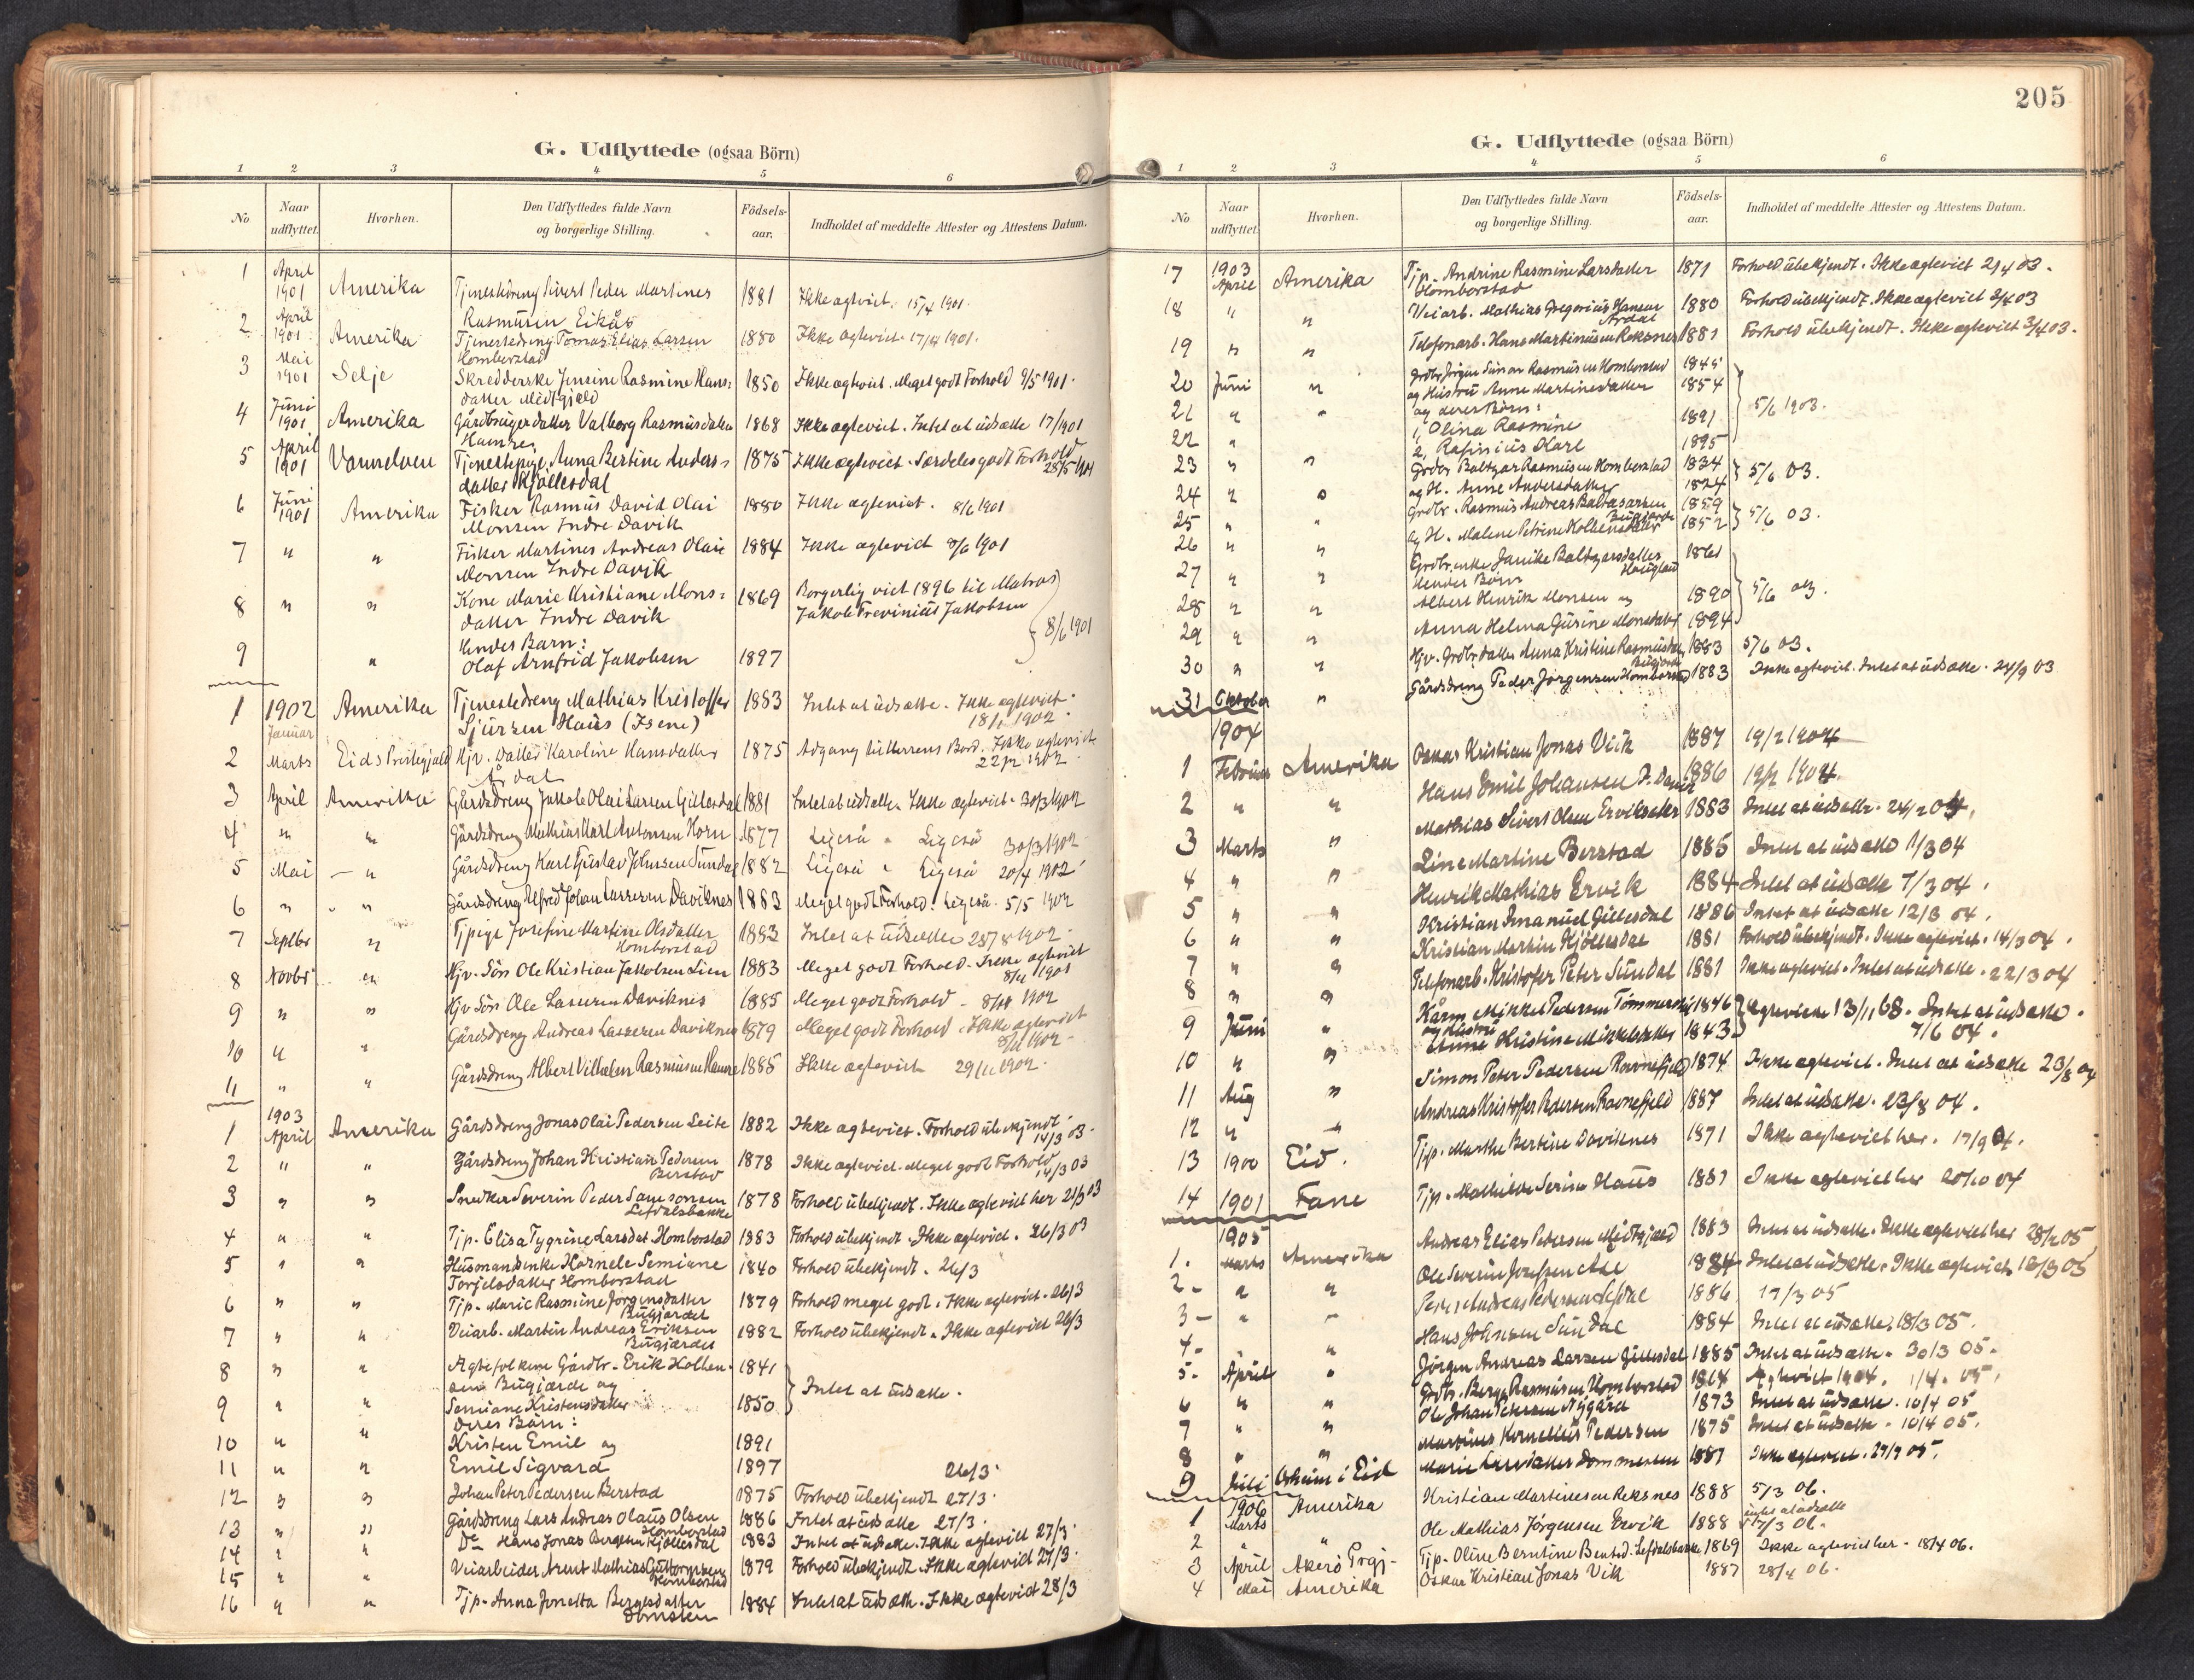 G. Udflyttede (ogsaa Börn)
1 2 3 4 5 6
No
Naar udflyttet.
Hvorhen.
Den Udflyttedes fulde Navn og borgerlige Stilling.
Födsels-aar.
Indholdet af meddelte Attester og Attestens Datum.
1 April 1901 Amerika Tjenestedreng Sivert Peder Martines 1881 Ikke ægteviet. 15/4 1901.
Rasmusen Eikås
2 April 1901. Amerika Tjenestedreng Tomas Elias Larsen 1880 Ikke ægteviet. 17/4 1901.
Homborstad
3 Mai 1901 Selje Skredderske Jensine Rasmine Hans= 1850 Ikke ægteviet. Meget godt Forhold 9/5 1901.
datter Midtgjæld
4 Juni 1901 Amerika Gårdbrugerdatter Valborg Rasmusdatter 1868 Ikke ægteviet. Intet at udsætte
Hamnes
5 April 1901 Tjenestepige Anna Bertine Anders= 1875 Ikke ægteviet. Særdeles godt Forhold
datter Kjöllesdal 28/5 1901
6 Juni 1901 Amerika Fisker Rasmus David Olai 1880 Ikke ægteviet. 8/6 1901
Monsen Indre Davik
7 " " Fisker Martines Andreas Olai 1884 Ikke ægteviet 8/6 1901
Monsen Indre Davik
8 " " Kone Marie Kristiane Mons= 1869 Borgerlig viet 1896 til Matros
datter Indre Davik Jakob Jakobsen
Hendes Barn: 8/6 1901
9 " Olaf Arnfrid Jakobsen 1897
1 1902 Januar Amerika Tjenestedreng Mathias Kristoffer 1883 Intet at udsætte. Ikke ægteviet.
Sjursen Haus (Isene) 18/1 1902.
2 Marts Eids Prestegjæld Gjv. Datter Karoline Hansdatter 1875 Adgang til Herrens Bord. Ikke ægteviet
Årdal 22/2 1902.
3 April Amerika Gårdsdreng Jakob Olai Larsen Gillesdal 1881 Intet at udsætte. Ikke ægteviet. 30/3 1902
4 " " Gårdsdreng Mathias Karl Antonsen Horn 1877 Ligeså " Ligeså 30/3 1902
5 Mai — " Gårdsdreng Karl Gustav Johnsen Sundal 1882 Ligeså " Ligeså 20/4 1902
6 " " Gårdsdreng Alfred Johan Lassesen Daviknes 1883 Meget godt Forhold. Ligeså. 5/5 1902
7 Septbr " Tjpige Josefine Martine Olsdatter 1883 Intet at udsætte 25/8 1902.
Homborstad
8 Novbr " Gjv. Sön Ole Kristian Jakobsen Lien 1883 Meget godt Forhold. Ikke ægteviet
9 " " Gjv Sön Ole Lassesen Daviknes 1885 Meget godt Forhold. 1902
10 " " Gårdsdreng Andreas Lassesen Daviknes 1879 Meget godt Forhold. Ikke ægteviet
1902.
11 " " Gårdsdreng Albert Vilhelm Rasmusen Hamre 1885 Ikke ægteviet 29/11 1902.
1 1903 April Amerika Gårdsdreng Jonas Olai Pedersen Leite 1882 Ikke ægteviet. Forhold ubekjendt.
14/3 03.
2 " " Gårdsdreng Johan Kristian Pedersen 1878 Ikke ægteviet. Meget godt Forhold
Berstad 14/3 03
3 " " Snedker Severin Peder Samsonsen 1878 Forhold ubekjendt. Ikke ægteviet her 21/3 03
Lefdalsbakke
4 " " Tjp. Elisa Tygrine Larsdat. Homborstad 1883 Forhold ubekjendt. Ikke ægteviet. 26/3 03
5 " " Husmandsenke Kornele Semiane 1840 Forhold ubekjendt. 26/3
Torjelsdatter Homborstad
6 " " Tjp. Marie Rasmine Jörgensdatter 1879 Forhold meget godt. Ikke ægteviet. 26/3
Bugjærdet
7 " " Veiarb. Martin Andreas Eriksen 1882 Forhold ubekjendt. Ikke ægteviet 26/3
Bugjærdet
8 " " Ægtefolkene Gårdbr. Erik Kolben- 1841
sen Bugjærde og Intet at udsætte.
9 " " Semiane Kristensdatter 1850
Deres Börn:
10 " " Kristen Emil og 1891
11 " " Emil Sigvard 1897 26/3.
12 " " Johan Peter Pedersen Berstad 1875 Forhold ubekjendt 27/3.
13 " " Gårdsdreng Lars Andreas Olaus Olsen 1886 Intet at udsætte 27/3.
Homborstad
14 " " Do Hans Jonas Bergesen Kjöllesdal 1883 Intet at udsætte. Ikke ægteviet 27/3.
15 " " Veiarbeider Arent Mathias Guttormsen 1879 Forhold ubekjendt. Ikke ægteviet 27/3.
Homborstad
16 " " Tjp. Anna Jonetta Bergesdatter 1884 Intet at udsætte. Ikke ægteviet 28/3
Domsten
205
G. Udflyttede (ogsaa Börn)
1 2 3 4 5 6
No
Naar udflyttet.
Hvorhen.
Den Udflyttedes fulde Navn og borgerlige Stilling.
Födsels-aar.
Indholdet af meddelte Attester og Attestens Datum.
17 1903 April Amerika Tjp. Andrine Rasmine Larsdatter 1871 Forhold ubekjendt. Ikke ægteviet 2/4 03.
Homborstad
18 " " Veiarb. Mathias Gregorius Hansen 1880 Forhold ubekjendt. Ikke ægteviet 3/4 03
Årdal
19 " " Telefonarb. Hans Martinusen Reksnes 1881 Forhold ubekjendt. Ikke ægteviet 3/4 03.
20 Juni " Grdbr. Jörgen Simon Rasmusen Homborstad 1845
21 " " og Hustru Anne Martinesdatter 1854
og deres Börn: 5/6 1903.
22 " 1, Olina Rasmine 1891
23 " " 2, Rasmus Karl 1895
24 " " Grdbr. Baltzar Rasmusen Homborstad 1834 5/6 03.
25 " " og H. Anne Andersdatter 1824
26 " " Grdbr. Rasmus Andreas Baltasarsen 1859
Bugjærde 5/6 03.
27 " " og H. Malene Petrine Kolbensdatter 1852
28 " " Grdbr.enke Janike Baltzarsdatter 1861
Haugland
Hendes Börn
29 " " Albert Henrik Monsen og 1890 5/6 03.
30 " " Anna Helma Gurine Monsdatter 1894
Gjv. Grdbr.datter Anna Kristine Rasmusdatter 1883 5/6 03.
Bugjærde
31 Oktober " Gårdsdreng Peder Jörgensen Homborstad 1883 Ikke ægteviet. Intet at udsætte. 24/9 03
1904
1 Februar Amerika Oskar Kristian Jonas Vik 1887 19/2 1904
2 " " Hans Emil Johansen I. Davik 1886 19/2 1904.
3 Marts " Mathias Sivert Olsen Erviksæter 1883 Intet at udsætte. 24/2 04.
4 " " Line Martine Berstad 1885 Intet at udsætte 1/3 04
5 " " Henrik Mathias Ervik 1884 Intet at udsætte 7/3 04.
6 " " Kristian Imanuel Gillesdal 1886 Intet at udsætte 12/3 04.
7 " " Kristian Martin Kjöllesdal 1881 Forhold ubekjendt. Ikke ægteviet. 14/3 04.
8 " " Telefonarb. Kristofer Peter Sundal 1881 Ikke ægteviet. Intet at udsætte. 22/3 04
9 Juni " Kårm. Mikkel Pedersen Tömmerstig 1846 Ægteviede 13/11 68. Intet at udsætte.
og Hustru
10 " " Anne Kristine Mikkelsdatter 1843 7/6 04.
11 Aug " Simon Peter Pedersen Ravnefjeld 1874 Ikke ægteviet. Intet at udsætte 23/8 04
12 " " Andreas Kristoffer Pedersen Ravnefjeld 1887 Intet at udsætte. 23/8 04.
13 1900 Eid. Tjp. Marthe Bertine Daviknes 1871 Ikke ægteviet her. 17/9 04.
14 1901 Fane Tjp. Mathilde Serine Haus 1881 Ikke ægteviet her 20/10 04
1905
1. Marts Amerika Andreas Elias Pedersen Midtgjæld 1883 Intet at udsætte. Ikke ægteviet her 28/2 05
2- " " Ole Severin Josefsen Aae 1884 Intet at udsætte. Ikke ægteviet 16/3 05
3- " " Peder Andreas Pedersen Lefdal 1886 17/3 05
4- " Hans Johnsen Sundal 1884 Intet at udsætte, 18/3 05.
5- April " Jörgen Andreas Larsen Gillesdal 1885 Intet at udsætte. 30/3 05.
6 " " Grdbr. Berge Rasmusen Homborstad 1864 Ægteviet 1904. 1/4. 05.
7 " " Ole Johan Petersen Nygård 1873 Intet at udsætte. 10/4 05
8 " " Martines Kornelius Pedersen 1875 Intet at udsætte. 10/4 05.
9 Juli Osheim i Eid Marie Larsdatter Dommersen 1887 Ikke ægteviet. 05.
1 1906 Marts Amerika Kristian Martinusen Reksnes 1888 5/3 06.
intet at udsætte
2 " " Ole Mathias Jörgensen Ervik 1888 17/3 06.
3 April Akerö Prgj- Tjp. Oline Berntine Bentsd. Lefdalsbakke 1869 Ikke ægteviet her. 18/4 06.
4 Mai Amerika Oskar Kristian Jonas Vik 1887 28/4 06.